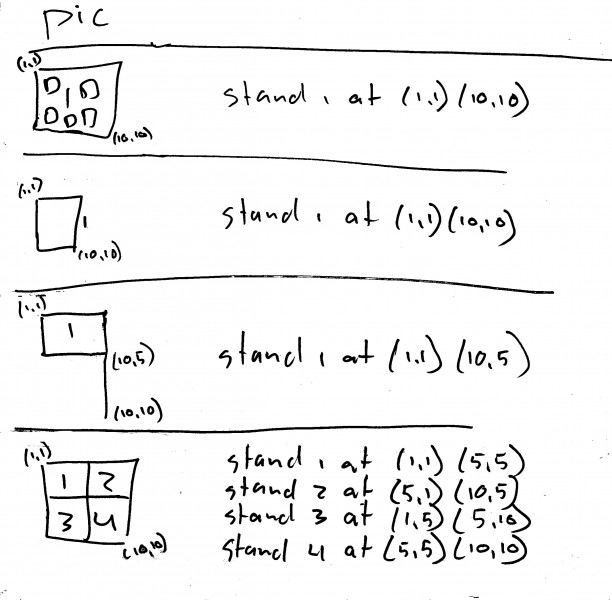 pic
(1,1)
0 1 0
0 0 0
(10,10)
stand 1 at (1,1) (10,10)
(1,1)
1
(10,10)
stand 1 at (1,1) (10,10)
(1,1)
1
(10,5)
(10,10)
stand 1 at (1,1) (10,5)
(1,1)
1 2
3 4
(10,10)
stand 1 at (1,1) (5,5)
stand 2 at (5,1) (10,5)
stand 3 at (1,5) (5,10)
stand 4 at (5,5) (10,10)